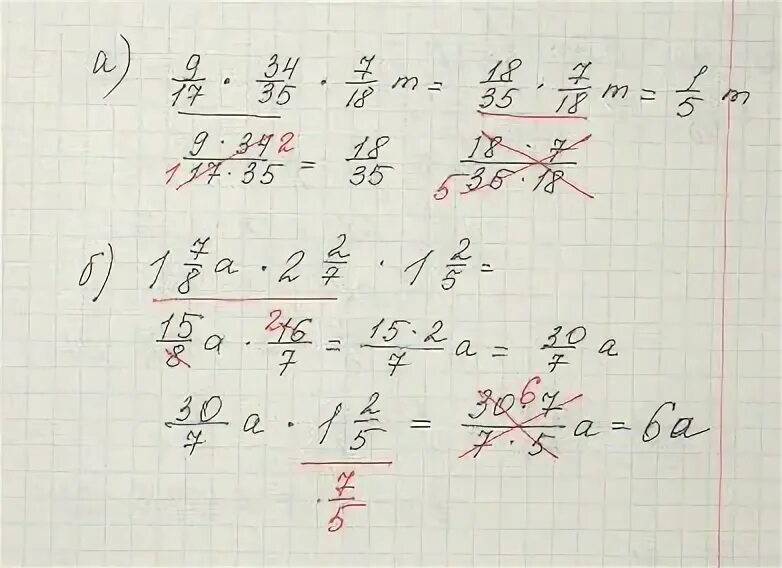 а) 9/17 · 34/35 · 7/18 m = 18/35 · 7/18 m = 1/5 m
9 · 34 2 / 1 17 · 35 = 18/35 18 · 7 / 5 35 · 18
б) 1 7/8 a · 2 2/7 · 1 2/5 =
15/8 a · 2 16/7 = 15 · 2/7 a = 30/7 a
30/7 a · 1 2/5 = 30 · 6 7 / 7 · 5 a = 6a
· 7/5